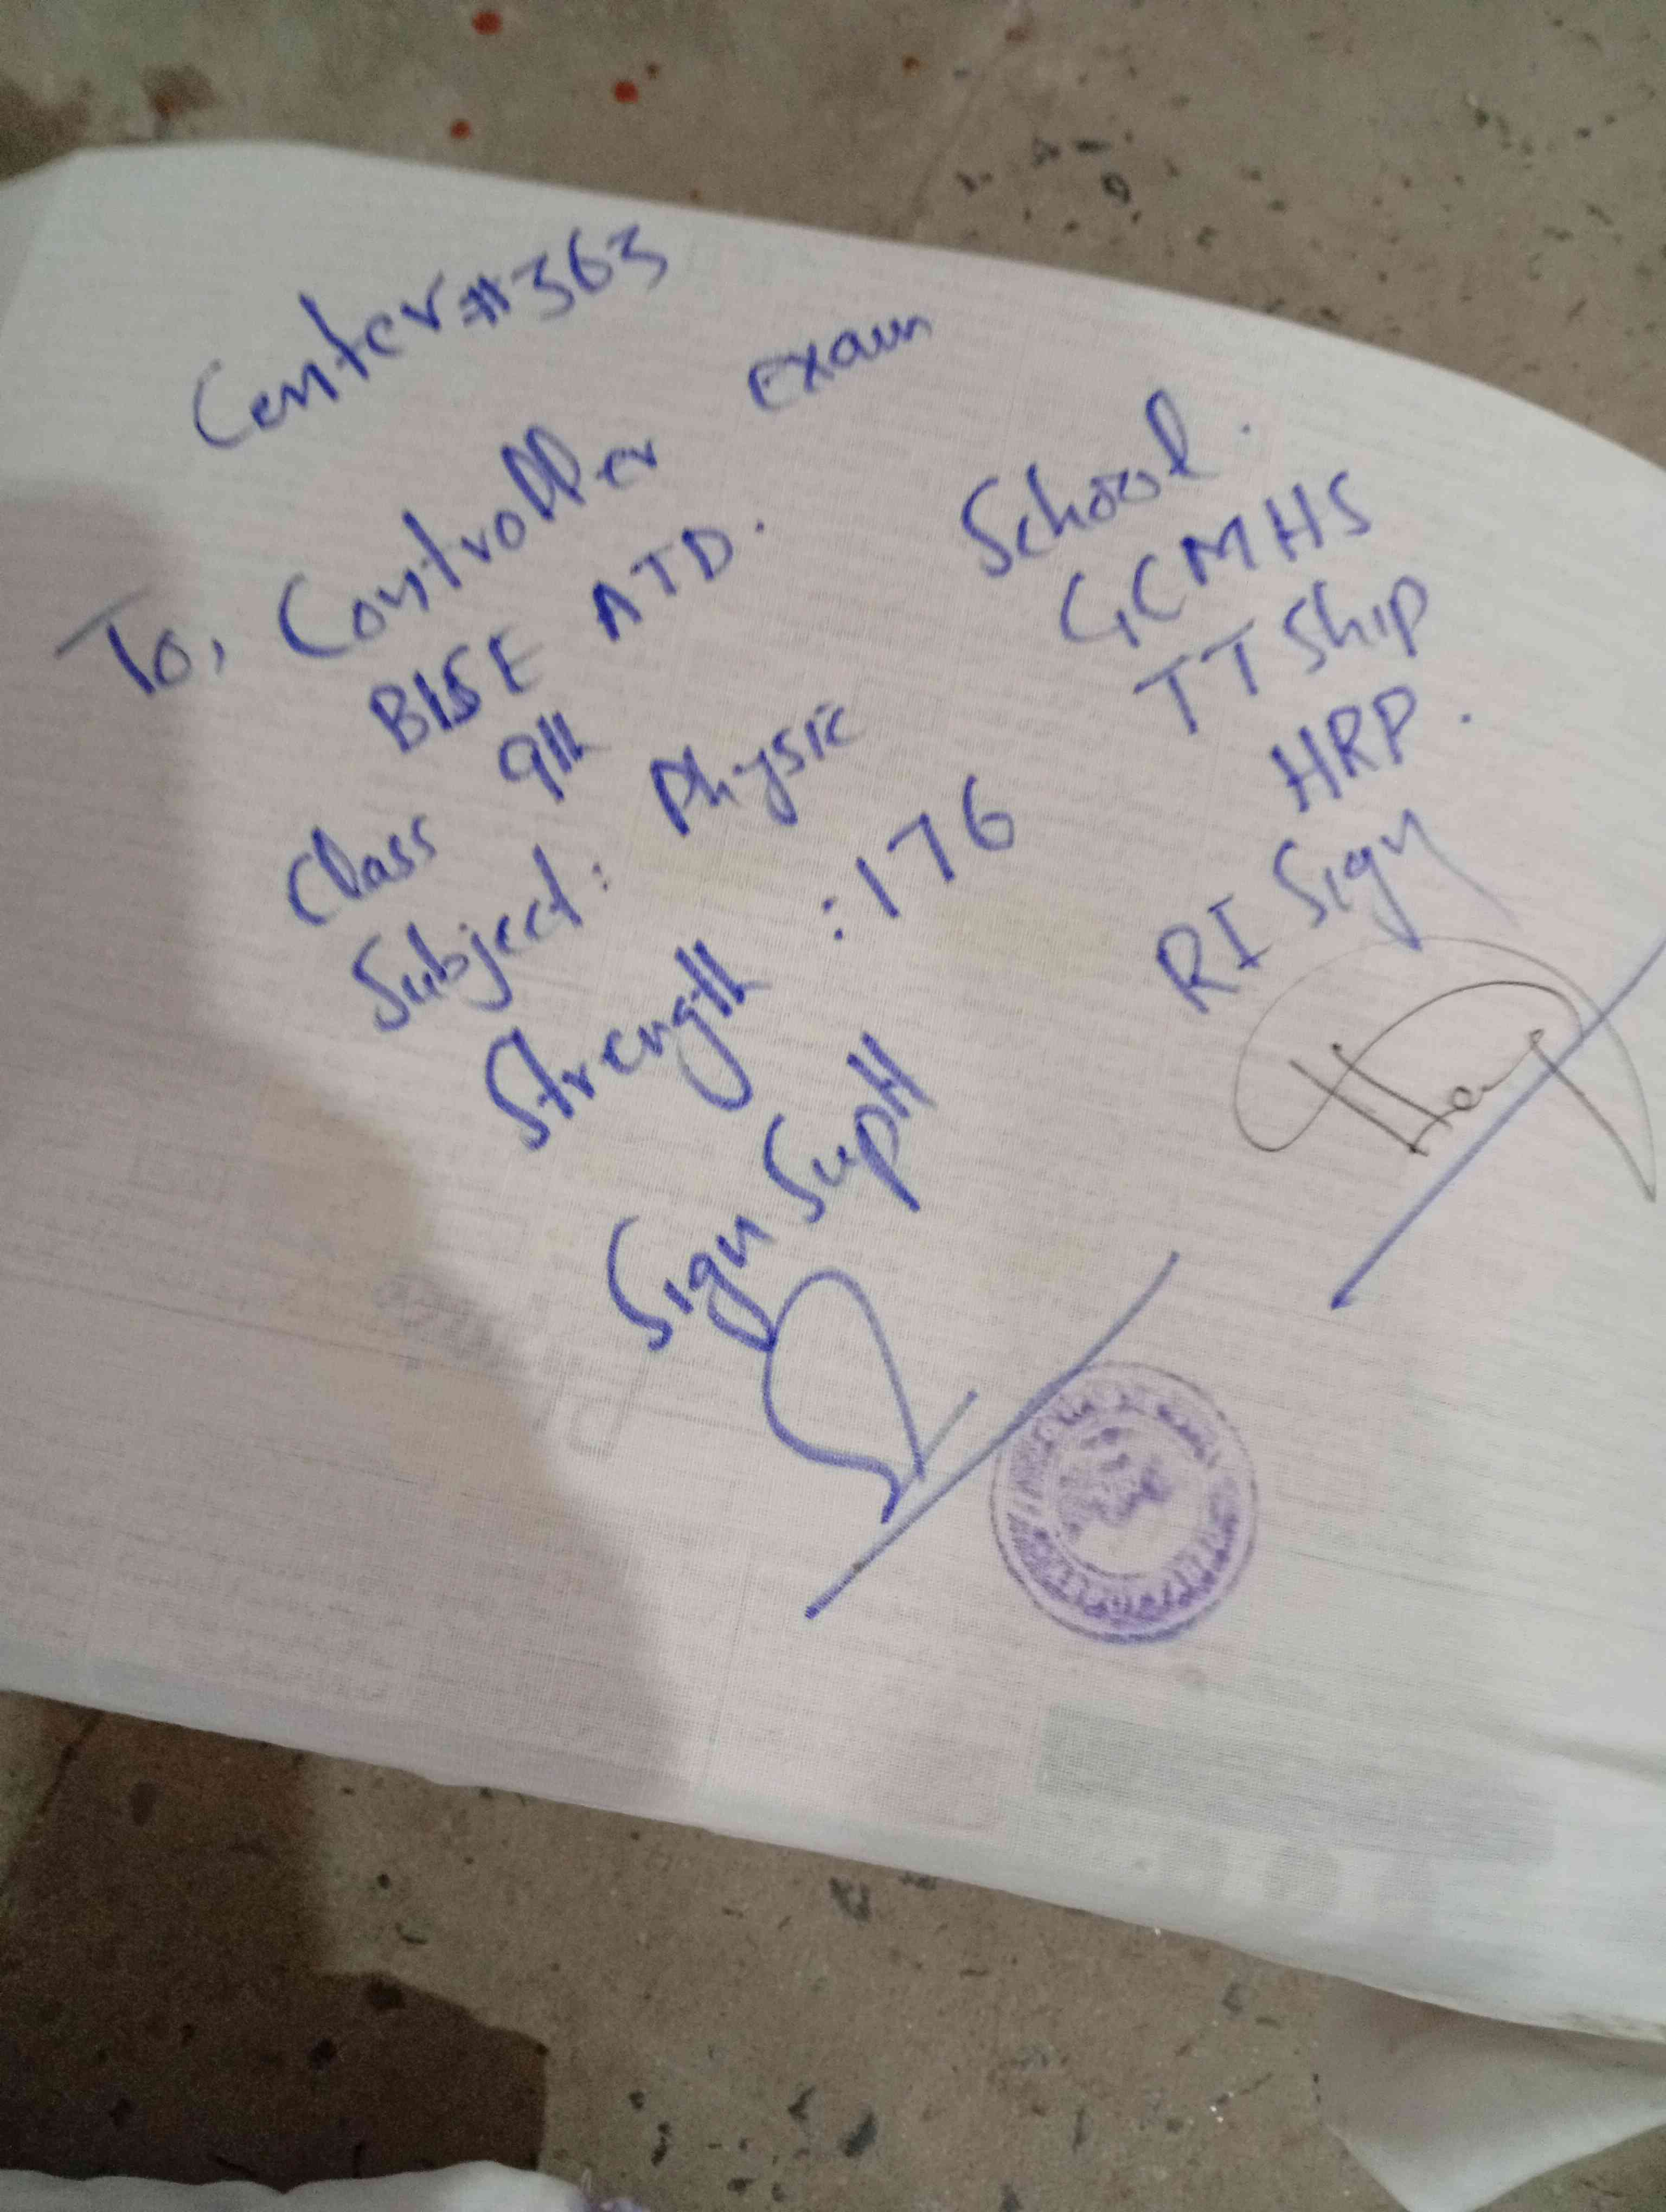 Center #363
To, Controller exam
BISE ATD.
Class 9th
Subject: Physic
Strength : 176
Sign Suptt
School.
GCMHS
TTShip
HRP.
RI Sign